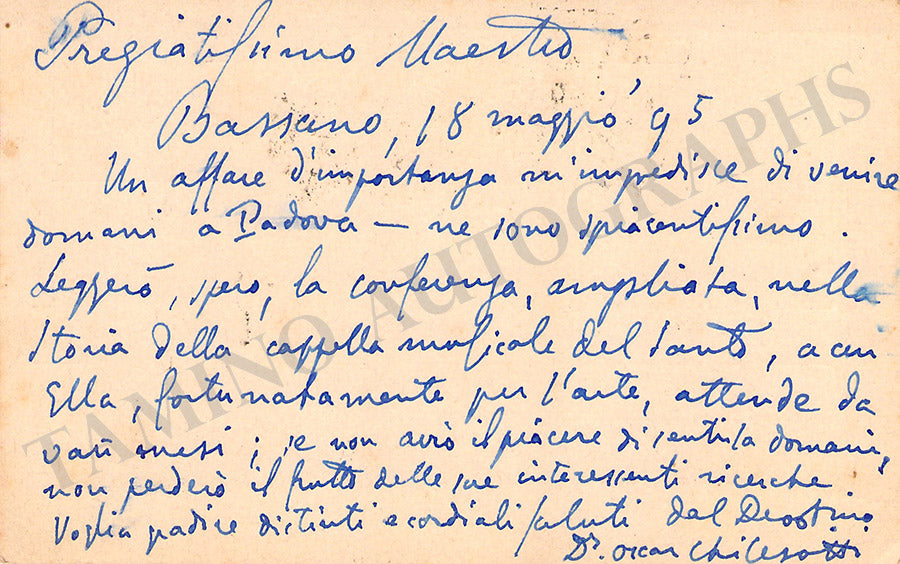 Pregiatissimo Maestro
Bassano, 18 maggio '95
Un affare d'importanza m'impedisce di venire
domani a Padova — ne sono spiacentissimo.
Leggerò, spero, la conferenza, ampliata, nella
Storia della cappella musicale del Santo, a cui
Ella, fortunatamente per l'arte, attende da
varî mesi; se non avrò il piacere di sentirla domani,
non perderò il frutto delle sue interessanti ricerche
Voglia gradire distinti e cordiali saluti dal Devotino
Dr. Oscar Chilesotti
TAMINO AUTOGRAPHS